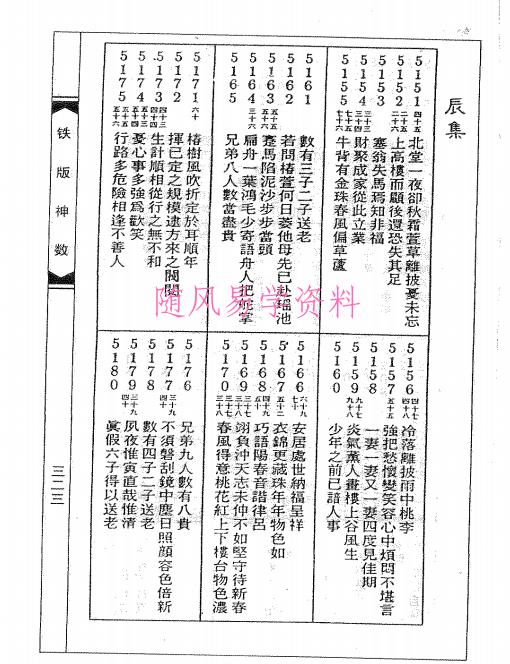 辰集
5151 四十五 北堂一夜卻秋霜萱草離披憂未忘
5152 二十五 二十六 上高樓而顧後還恐失其足
5153 塞翁失馬焉知非福
5154 三十三 三十四 財聚成家從此立業
5155 七十五 七十六 牛背有金珠春風偏草蘆
5156 四十七 四十八 冷落離披雨中桃李
5157 五十五 強把愁懷變笑容心中煩悶不堪言
5158 一妻一妻又一妻四度見佳期
5159 九十七 九十八 炎氣薰人畫樓上谷風生
5160 少年之前已諳人事
5161 數有三子二子送老
5162 若問椿萱何日萎他母先已赴瑤池
5163 五十五 五十六 蹇馬陷泥沙步步當頭
5164 三十三 三十四 扁舟一葉鴻毛少寄語舟人把舵掌
5165 兄弟八人數當盡貴
5166 六十九 七十 安居處世納福呈祥
5167 五十一 五十二 衣錦更藏珠年年物色如
5168 四十九 五十 巧語陽春音諧律呂
5169 三十七 三十八 翊負沖天志未伸不如堅守待新春
5170 三十七 三十八 春風得意桃花紅上下樓台物色濃
5171 六十 椿樹風吹折定於耳順年
5172 揮已定之規模遽方來之閥閱
5173 四十三 四十四 生計順相從行之無不和
5174 五十三 五十四 憂心事多強爲歡笑
5175 五十五 五十六 行路多危險相逢不善人
5176 兄弟九人數有八貴
5177 三十九 四十 不須磐刮鏡中塵日照顏容色倍新
5178 數有四子二子送老
5179 三十九 四十 夙夜惟寅直哉惟清
5180 眞假六子得以送老
铁版神数
三二三
随风易学资料